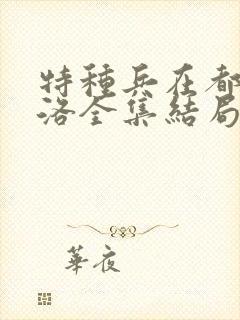 特種兵在都
洛全集結局
華夜